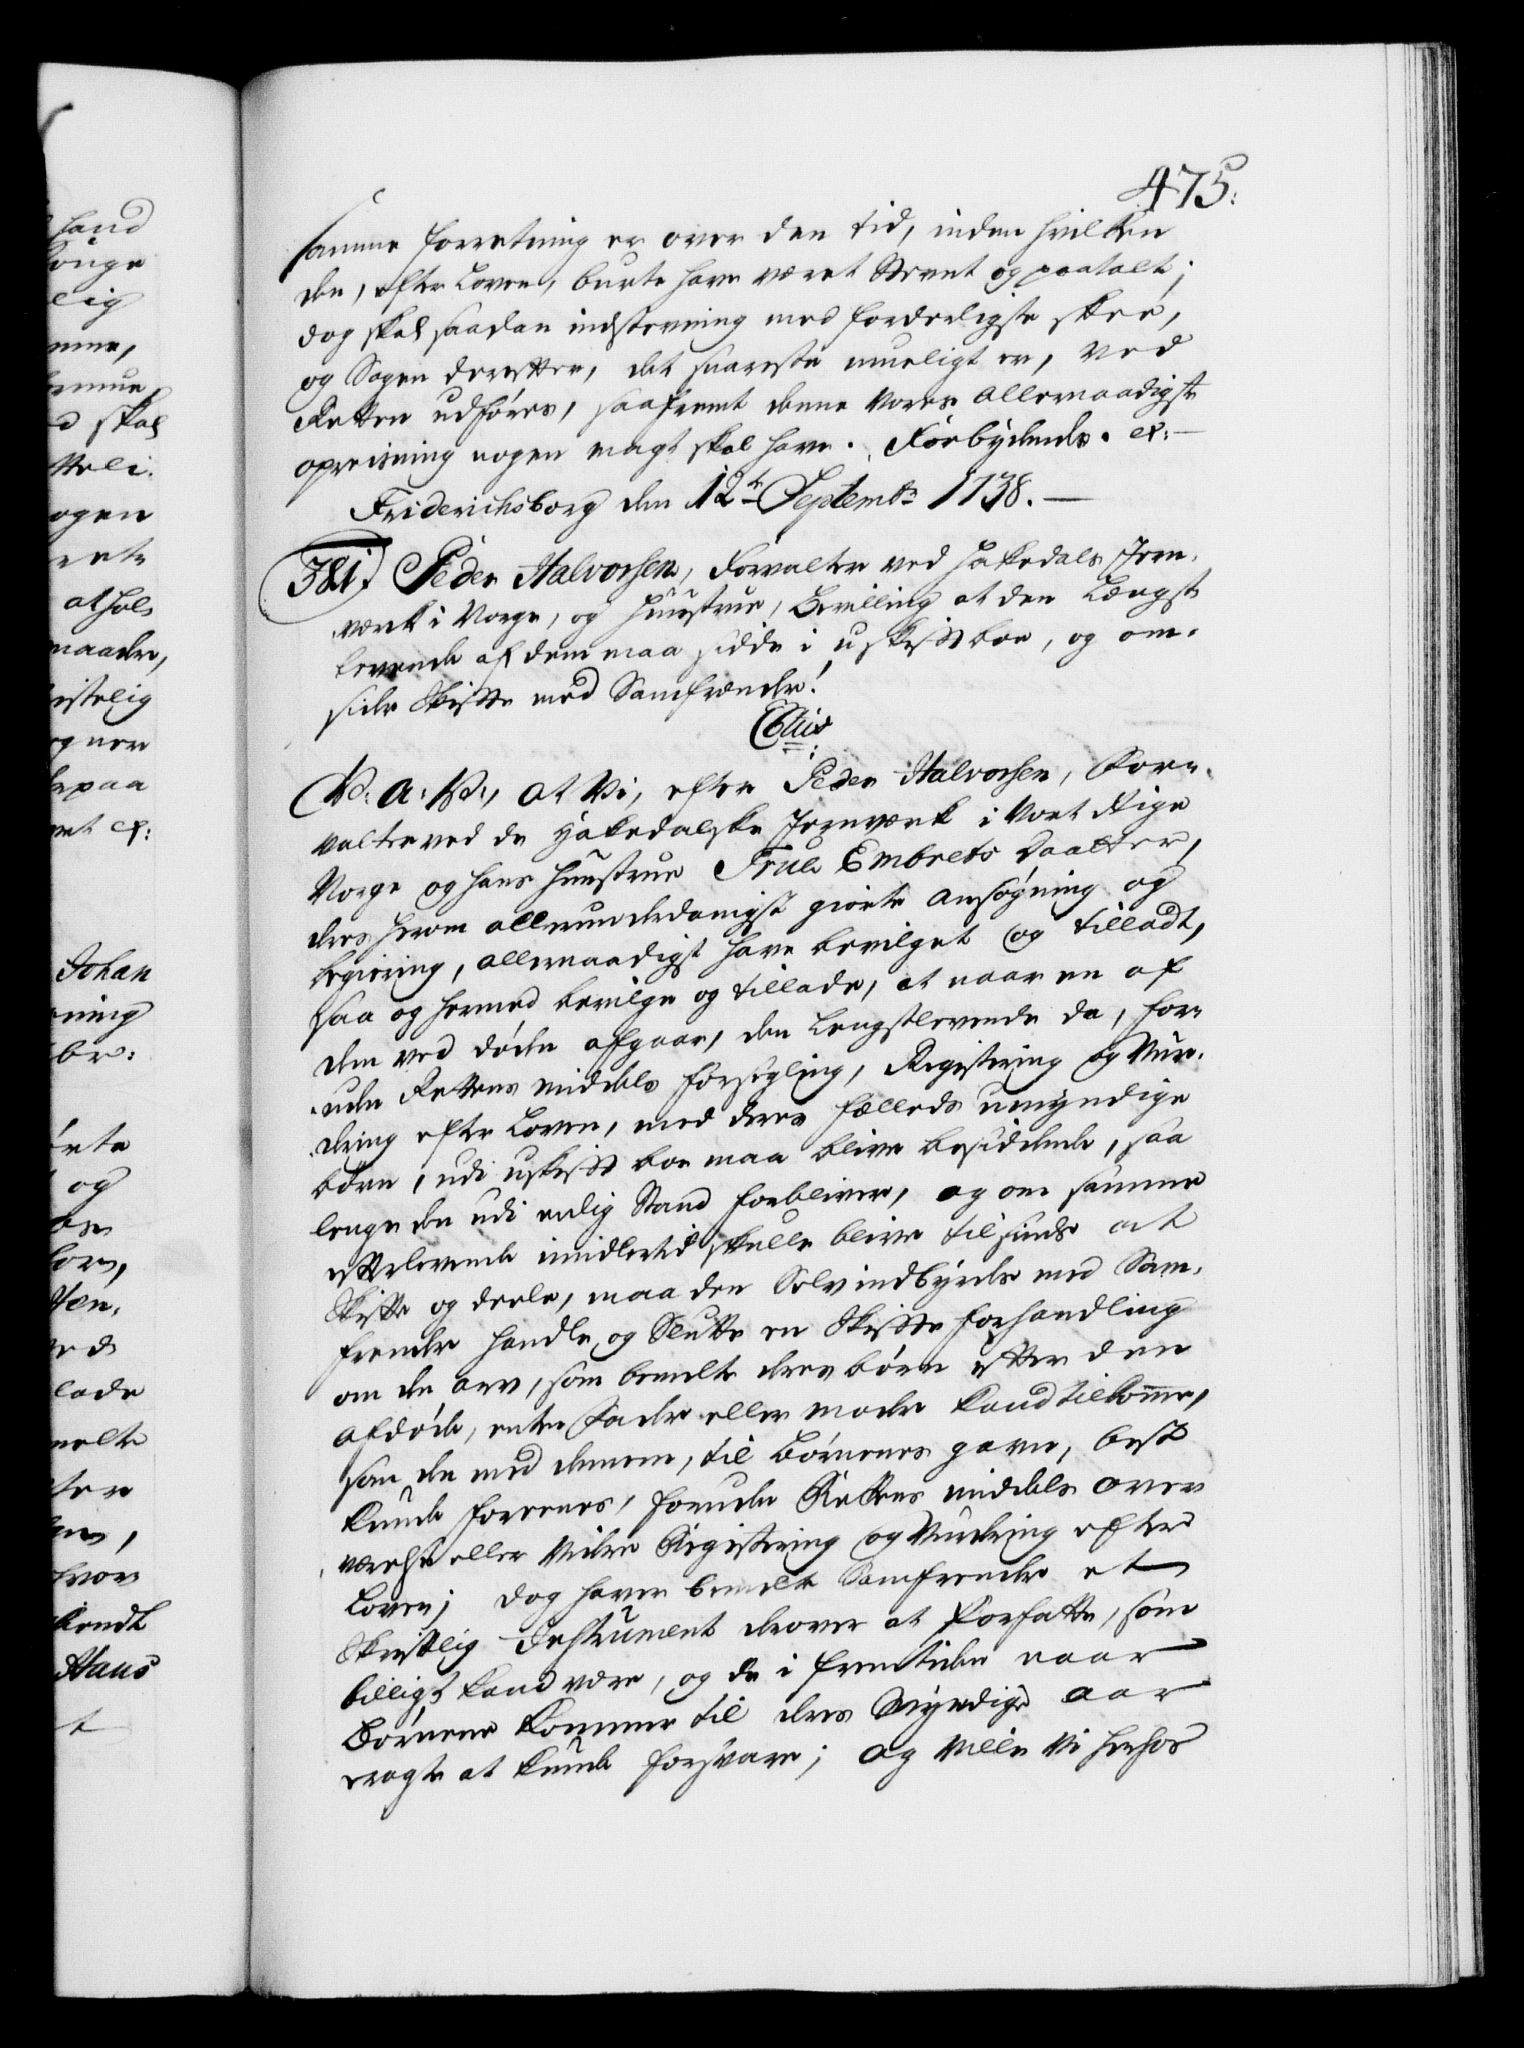 475.
samme forretning er over den tid, inden hvilken
den, efter Loven, burte have været Stevnt og paatalt;
dog skal saadan indstevning med forderligste skee,
og Sagen derefter, det snareste mueligt er, ved
Retten udføres, saafremt denne Vores allernaadigste
opreisning nogen magt skal have. Forbydende. &c:
Friderichsborg den 12te Septembr 1738.
381. Peder Halvorsen, Forvalter ved Hakedals Jern-
værk i Norge, og Huustrue, Bevilling at den Længst
levende af dem maa sidde i uskift boe, og om-
sider Skifte med Samfrænder.
C VIts
V. A. V., at Vi, efter Peder Halvorsen, For-
valter ved de Hakedalske Jernværk i Vort Rige
Norge og hans Huustrue Embrets Daatter,
deres herom allerunderdanigst giorte ansøgning og
begiering, allernaadigst have bevilget og tilladt,
saa og hermed bevilge og tillade, at naar en af
dem ved døden afgaar, den Lengstlevende da, for-
uden Rettens middels forsegling, Registering og Vur-
dering efter Loven, med deres fælleds umyndige
børn, udi uskift boe maa blive besiddende, saa
lenge den udi enlig Stand forbliver, og om samme
efterlevende imidlertid skulle blive til sinds at
Skifte og deele, maa den Selv indbyrdes med Sam-
frender handle og Slutte en Skifte forhandling
om den arv, som bemelte deres børn efter den
afdøde, enten Fader eller moder kand tilkomme,
som de med dennem, til Børnenes gavn, best
kunde foreenes, foruden Rettens middels over
værelse eller Viidere Registering og Vurdering efter
Loven; dog haver bemelte Samfrender et
Skriftlig Instrument derover at forfatte, som
billigt kand være, og de i fremtiden naar
Børnene kommer til deres Myndige aar
agte at kunde forsvare; og Ville Vi herhos